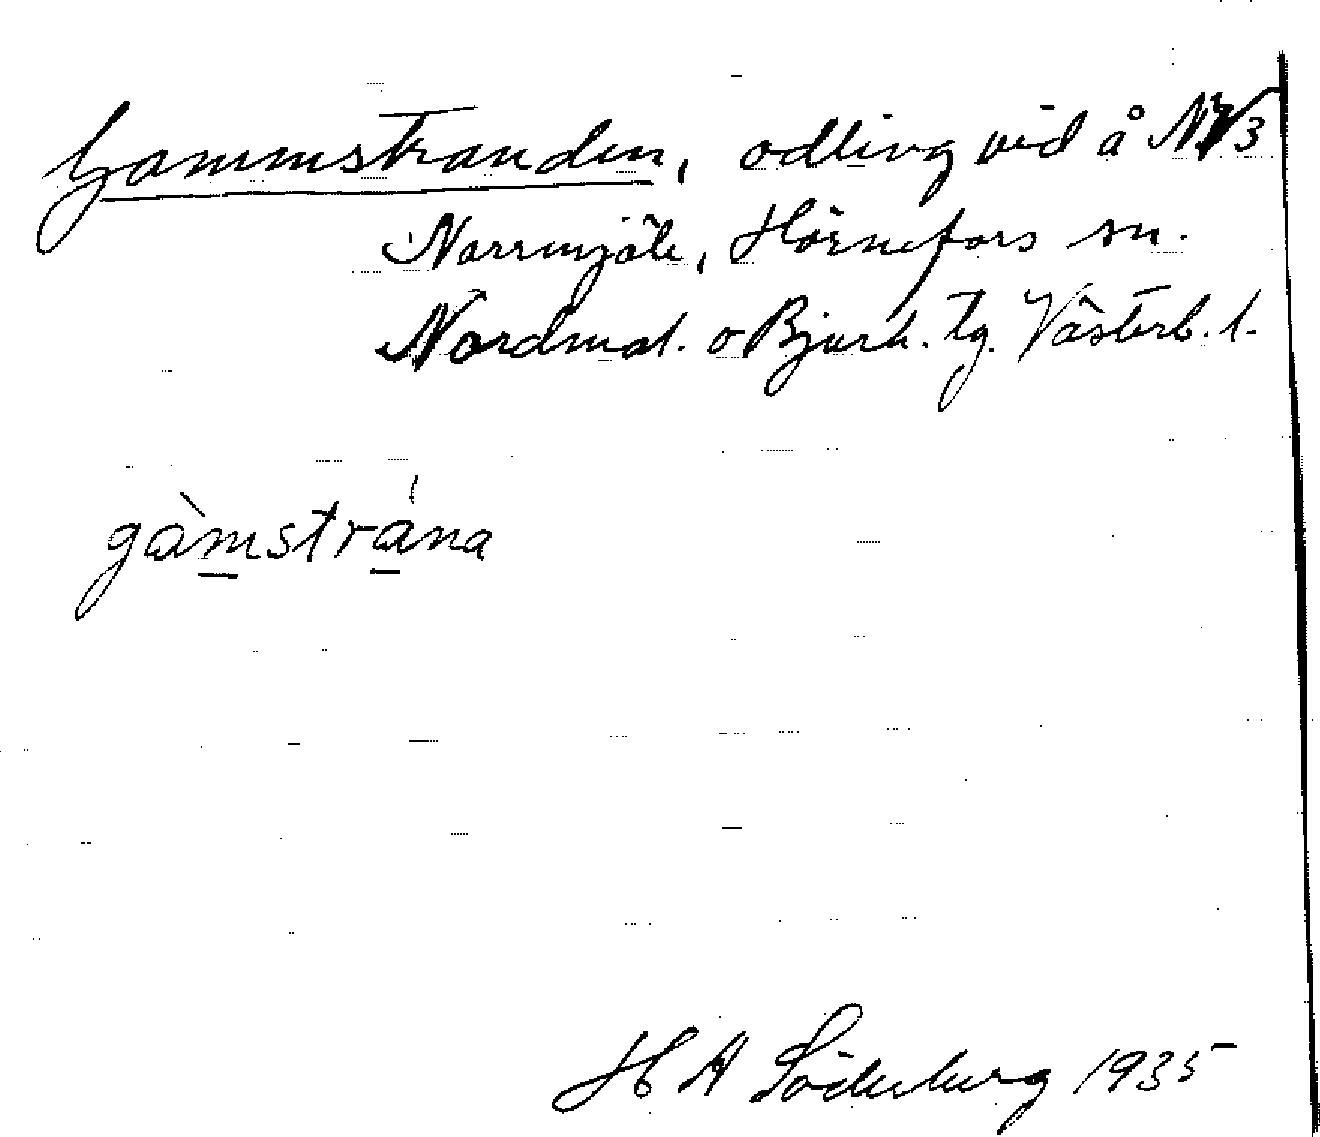 Gammstranden, odling vid å N:r 3
Norrmjöle, Hörnefors sn.
Nordmal. o Bjurh. tg. Västerb. l.
gàmstrána
H A Söderberg 1935